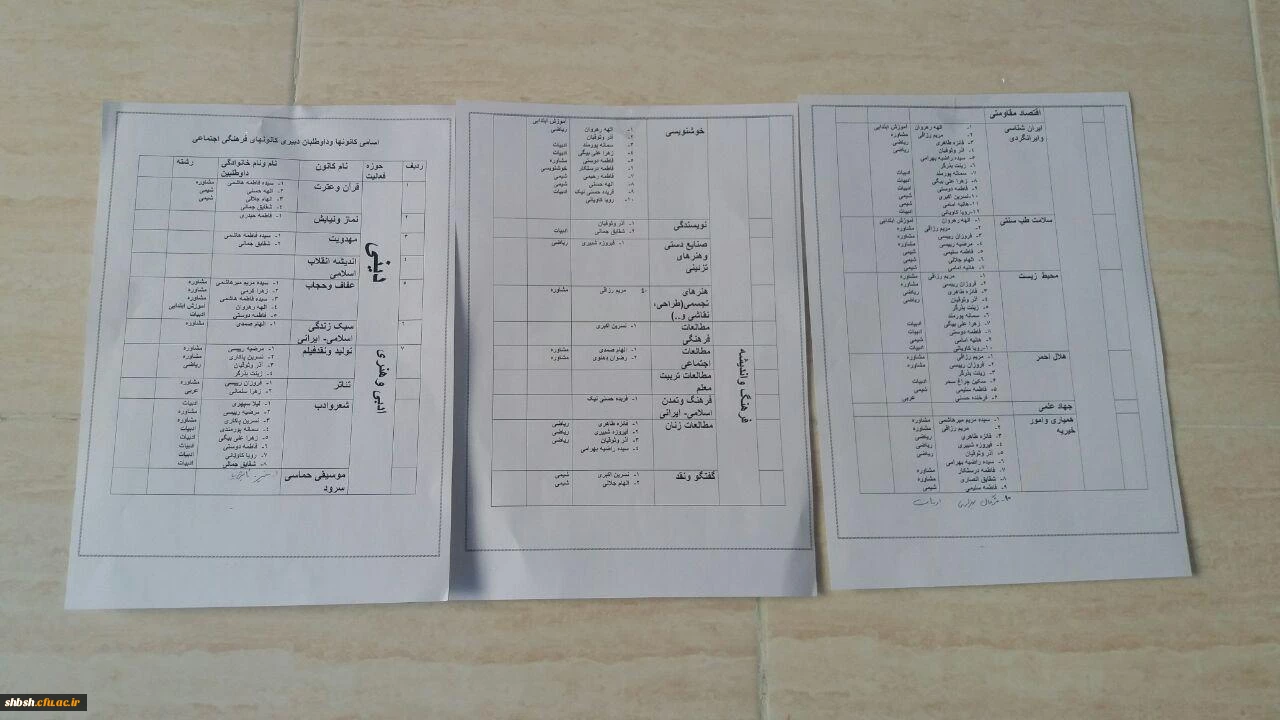 اسامی کانونها وداوطلبان دبیری کانونهای فرهنگی اجتماعی
ردیف حوزه فعالیت نام کانون نام ونام خانوادگی داوطلبین رشته
دینی
۱ قرآن وعترت
۱- سیده فاطمه هاشمی مشاوره
۲- الهه حسنی شیمی
۳- الهام جلالی شیمی
۴- شقایق جمانی
۲ نماز ونیایش
۱- فاطمه حیدری
۳ مهدویت
۱- سیده فاطمه هاشمی
۲- شقایق جمانی
۴ اندیشه انقلاب اسلامی
۵ عفاف وحجاب
۱- سیده مریم میرهاشمی مشاوره
۲- زهرا کرمی مشاوره
۳- سیده فاطمه هاشمی مشاوره
۴- الهه رهروان آموزش ابتدایی
۵- فاطمه دوستی ادبیات
۶ سبک زندگی اسلامی- ایرانی
۱- الهام صمدی مشاوره
ادبی وهنری
۷ تولید ونقدفیلم
۱- مرضیه رییسی مشاوره
۲- نسرین پاکاری مشاوره
۳- آذر وثوقیان ریاضی
۴- زینت بذرگر
تئاتر
۱- فروزان رییسی مشاوره
۲- زهرا سلمانی عربی
شعروادب
۱- لیلا سپهری ادبیات
۲- مرضیه رییسی مشاوره
۳- نسرین پاکاری مشاوره
۴- سمانه پورمندی ادبیات
۵- زهرا علی بیگی ادبیات
۶- فاطمه دوستی ادبیات
۷- رویا کاویانی ادبیات
۸- شقایق جمالی ادبیات
موسیقی حماسی سرود
خوشنویسی
آموزش ابتدایی
۱- الهه رهروان ریاضی
۲- آذر وثوقیان
۳- سمانه پورمند ادبیات
۴- زهرا علی بیگی ادبیات
۵- فاطمه دوستی مشاوره
۶- فاطمه درستکار خوشنویسی
۷- فاطمه رحیمی شیمی
۸- الهه حسنی شیمی
۹- فریده حسنی نیک ادبیات
۱۰- رویا کاویانی
نویسندگی
۱- آذر وثوقیان
۲- شقایق جمالی ادبیات
صنایع دستی وهنرهای تزئینی
۱- فیروزه شبیری ریاضی
هنرهای تجسمی(طراحی، نقاشی و..)
مریم رزاقی مشاوره
فرهنگ واندیشه
مطالعات فرهنگی
۱- نسرین اکبری
مطالعات اجتماعی
۱- الهام صمدی مشاوره
۲- رضوان دهنوی مشاوره
مطالعات تربیت معلم
فرهنگ وتمدن اسلامی- ایرانی
۱- فریده حسنی نیک
مطالعات زنان
۱- فائزه طاهری ریاضی
۲- فیروزه شبیری ریاضی
۳- آذر وثوقیان ریاضی
۴- سیده راضیه بهرامی
گفتگو ونقد
۱- نسرین اکبری شیمی
۲- الهام جلالی شیمی
اقتصاد مقاومتی
ایران شناسی وایرانگردی
۱- الهه رهروان آموزش ابتدایی
۲- مریم رزاقی مشاوره
۳- فائزه طاهری ریاضی
۴- آذر وثوقیان ریاضی
۵- سیده راضیه بهرامی
۶- زینت بذرگر
۷- سمانه پورمند ادبیات
۸- زهرا علی بیگی ادبیات
۹- فاطمه دوستی ادبیات
۱۰- نسرین اکبری شیمی
۱۱- هانیه امامی شیمی
۱۲- رویا کاویانی ادبیات
سلامت طب سنتی
۱- الهه رهروان آموزش ابتدایی
۲- مریم رزاقی مشاوره
۳- فروزان رییسی مشاوره
۴- مرضیه رییسی مشاوره
۵- فاطمه سلیمی شیمی
۶- الهام جلالی شیمی
۷- هانیه امامی شیمی
محیط زیست
۱- مریم رزاقی مشاوره
۲- فروزان رییسی مشاوره
۳- فائزه طاهری ریاضی
۴- آذر وثوقیان ریاضی
۵- زینت بذرگر
۶- سمانه پورمند
۷- زهرا علی بیگی ادبیات
۸- فاطمه دوستی ادبیات
۹- هانیه امامی شیمی
۱۰- رویا کاویانی ادبیات
هلال احمر
۱- مریم رزاقی مشاوره
۲- فروزان رییسی مشاوره
۳- زینت بذرگر
۴- ساتین چراغ سحر ادبیات
۵- فاطمه سلیمی شیمی
۶- فرخنده حسنی عربی
جهاد علمی
همیاری وامور خیریه
۱- سیده مریم میرهاشمی مشاوره
۲- مریم رزاقی مشاوره
۳- فائزه طاهری ریاضی
۴- فیروزه شبیری ریاضی
۵- آذر وثوقیان ریاضی
۶- سیده راضیه بهرامی
۷- فاطمه درستکار مشاوره
۸- شقایق انصاری مشاوره
۹- فاطمه سلیمی شیمی
۱۰- ادبیات
shbsh.cfu.ac.ir